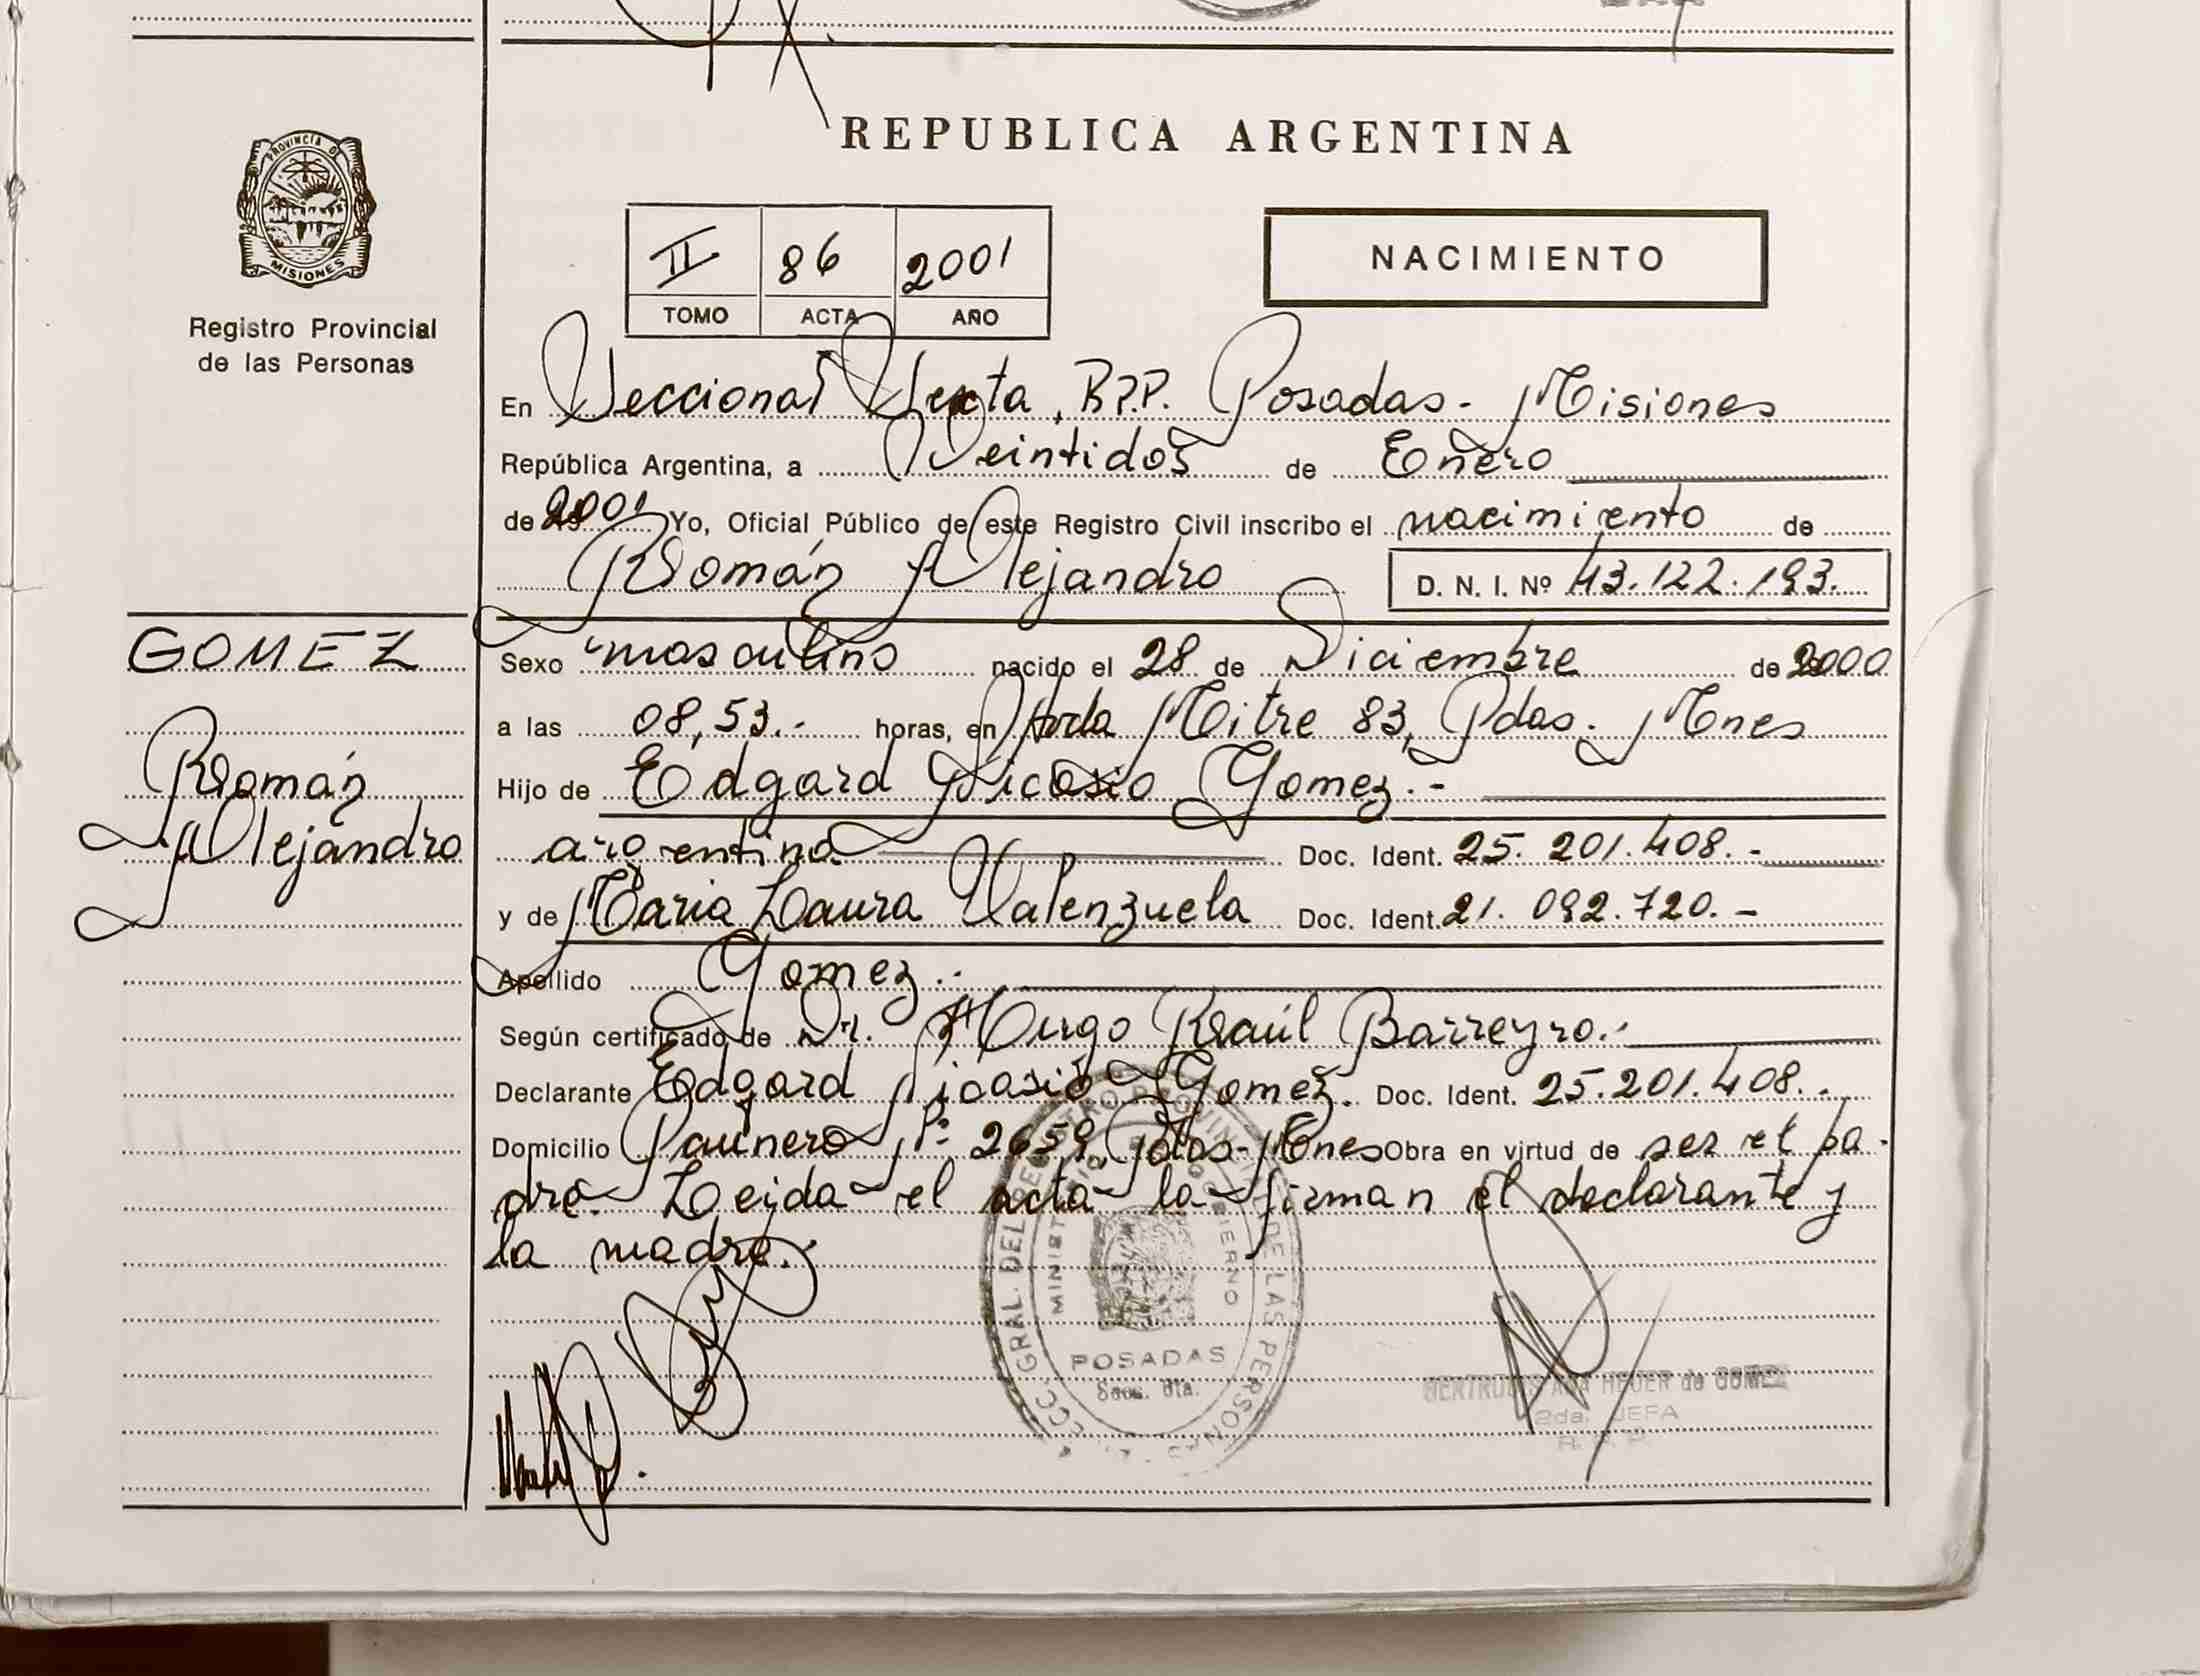 PROVINCIA D
MISIONES
Registro Provincial
de las Personas
REPUBLICA ARGENTINA
II 86 2001
TOMO ACTA AÑO
NACIMIENTO
En Seccional Sexta, R.P.P. Posadas - Misiones
República Argentina, a Veintidos de Enero
de 2001 Yo, Oficial Público de este Registro Civil inscribo el nacimiento de
Román Alejandro D. N. I. Nº 43.122.193.
GOMEZ
Román
Alejandro
Sexo masculino nacido el 28 de Diciembre de 2000
a las 08,53.- horas, en Avda Mitre 83, Pdas. Mnes
Hijo de Edgard Nicasio Gomez.-
argentino Doc. Ident. 25.201.408.-
y de Maria Laura Valenzuela Doc. Ident. 21.092.720.-
Apellido Gomez.-
Según certificado de Dr. Hugo Raúl Barreyro.-
Declarante Edgard Nicasio Gomez. Doc. Ident. 25.201.408.-
Domicilio Paunero Nº 2659, Pdas-Mnes Obra en virtud de ser el pa-
dre. Leida el acta la firman el declarante y
la madre.-
GRAL. DEL REGISTRO PROVINCIAL DE LAS PERSONAS
MINISTERIO DE GOBIERNO
POSADAS
Secc. 6ta.
GERTRUDIS ANA HEUER de GOMEZ
2da. JEFA
R. P. P.